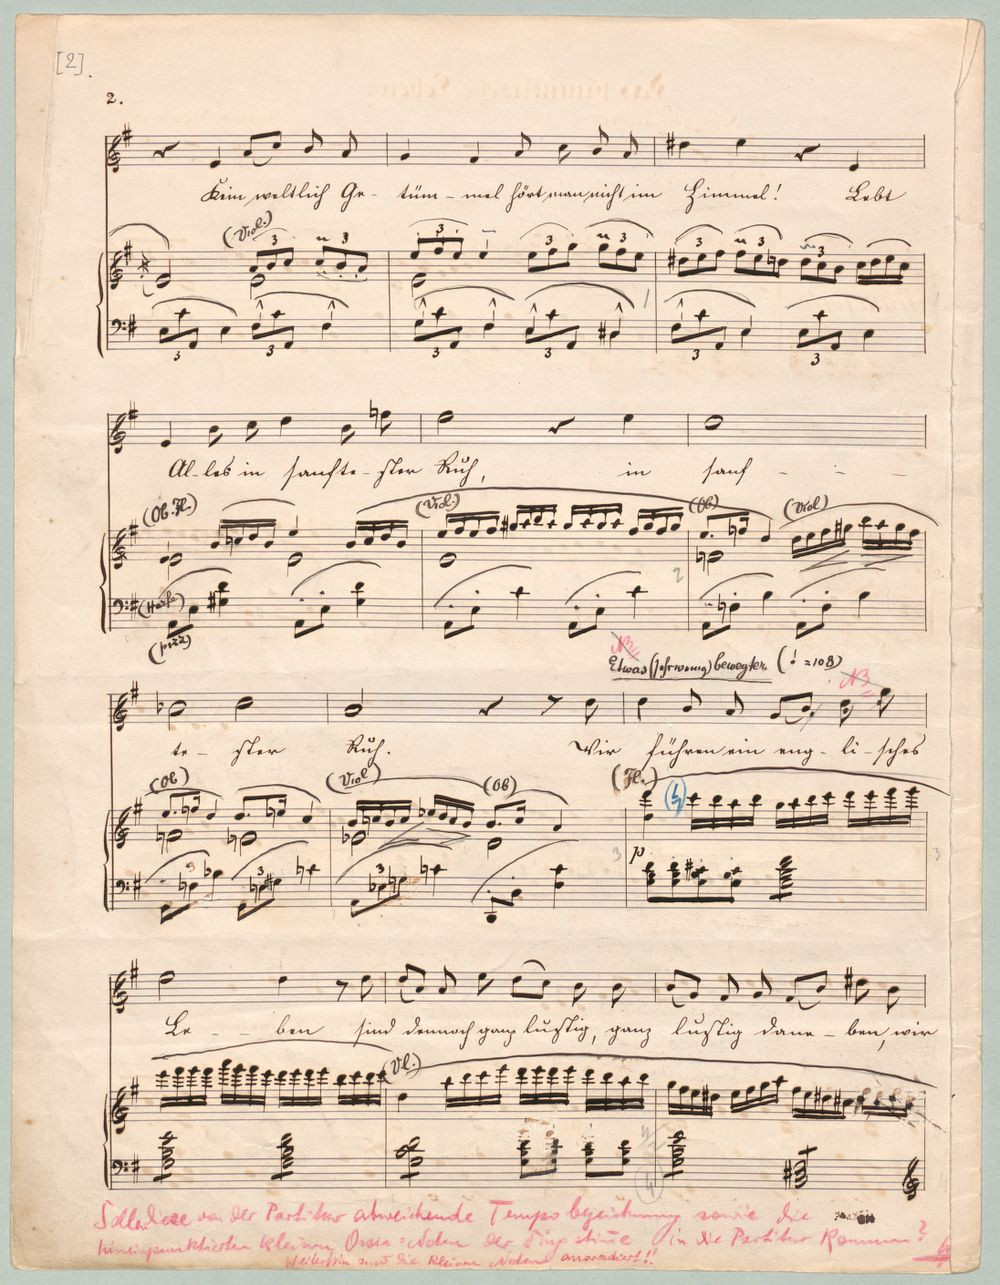 [2].
2.
Kein weltlich Ge- tüm- mel hört man nicht im Himmel! Lebt
(Viol.)
3 3 3 3 3 3 3 3
3 3 3 3 3 3
1
Al-les in sanfte-ster Ruh, in sanf - - -
(Ob. Fl.) (Viol.) (Ob) (Viol)
(Harfe)
2
(pizz)
NB
Etwas (sehr wenig) bewegter (♩=108)
NB
te- ster Ruh. Wir führen ein eng- li- sches
(Ob) (Viol) (Ob) (Fl.)
p
3 3
3 3
Le - - ben sind dennoch ganz lustig, ganz lustig dane- ben, wir
(Vl.)
4
Soll diese von der Partitur abweichende Tempobezeichnung sowie die
hineinpunktierten kleinen Ossia=Noten der Singstime in die Partitur kommen?
Weiterhin sind die kleinen Noten ausradiert!!